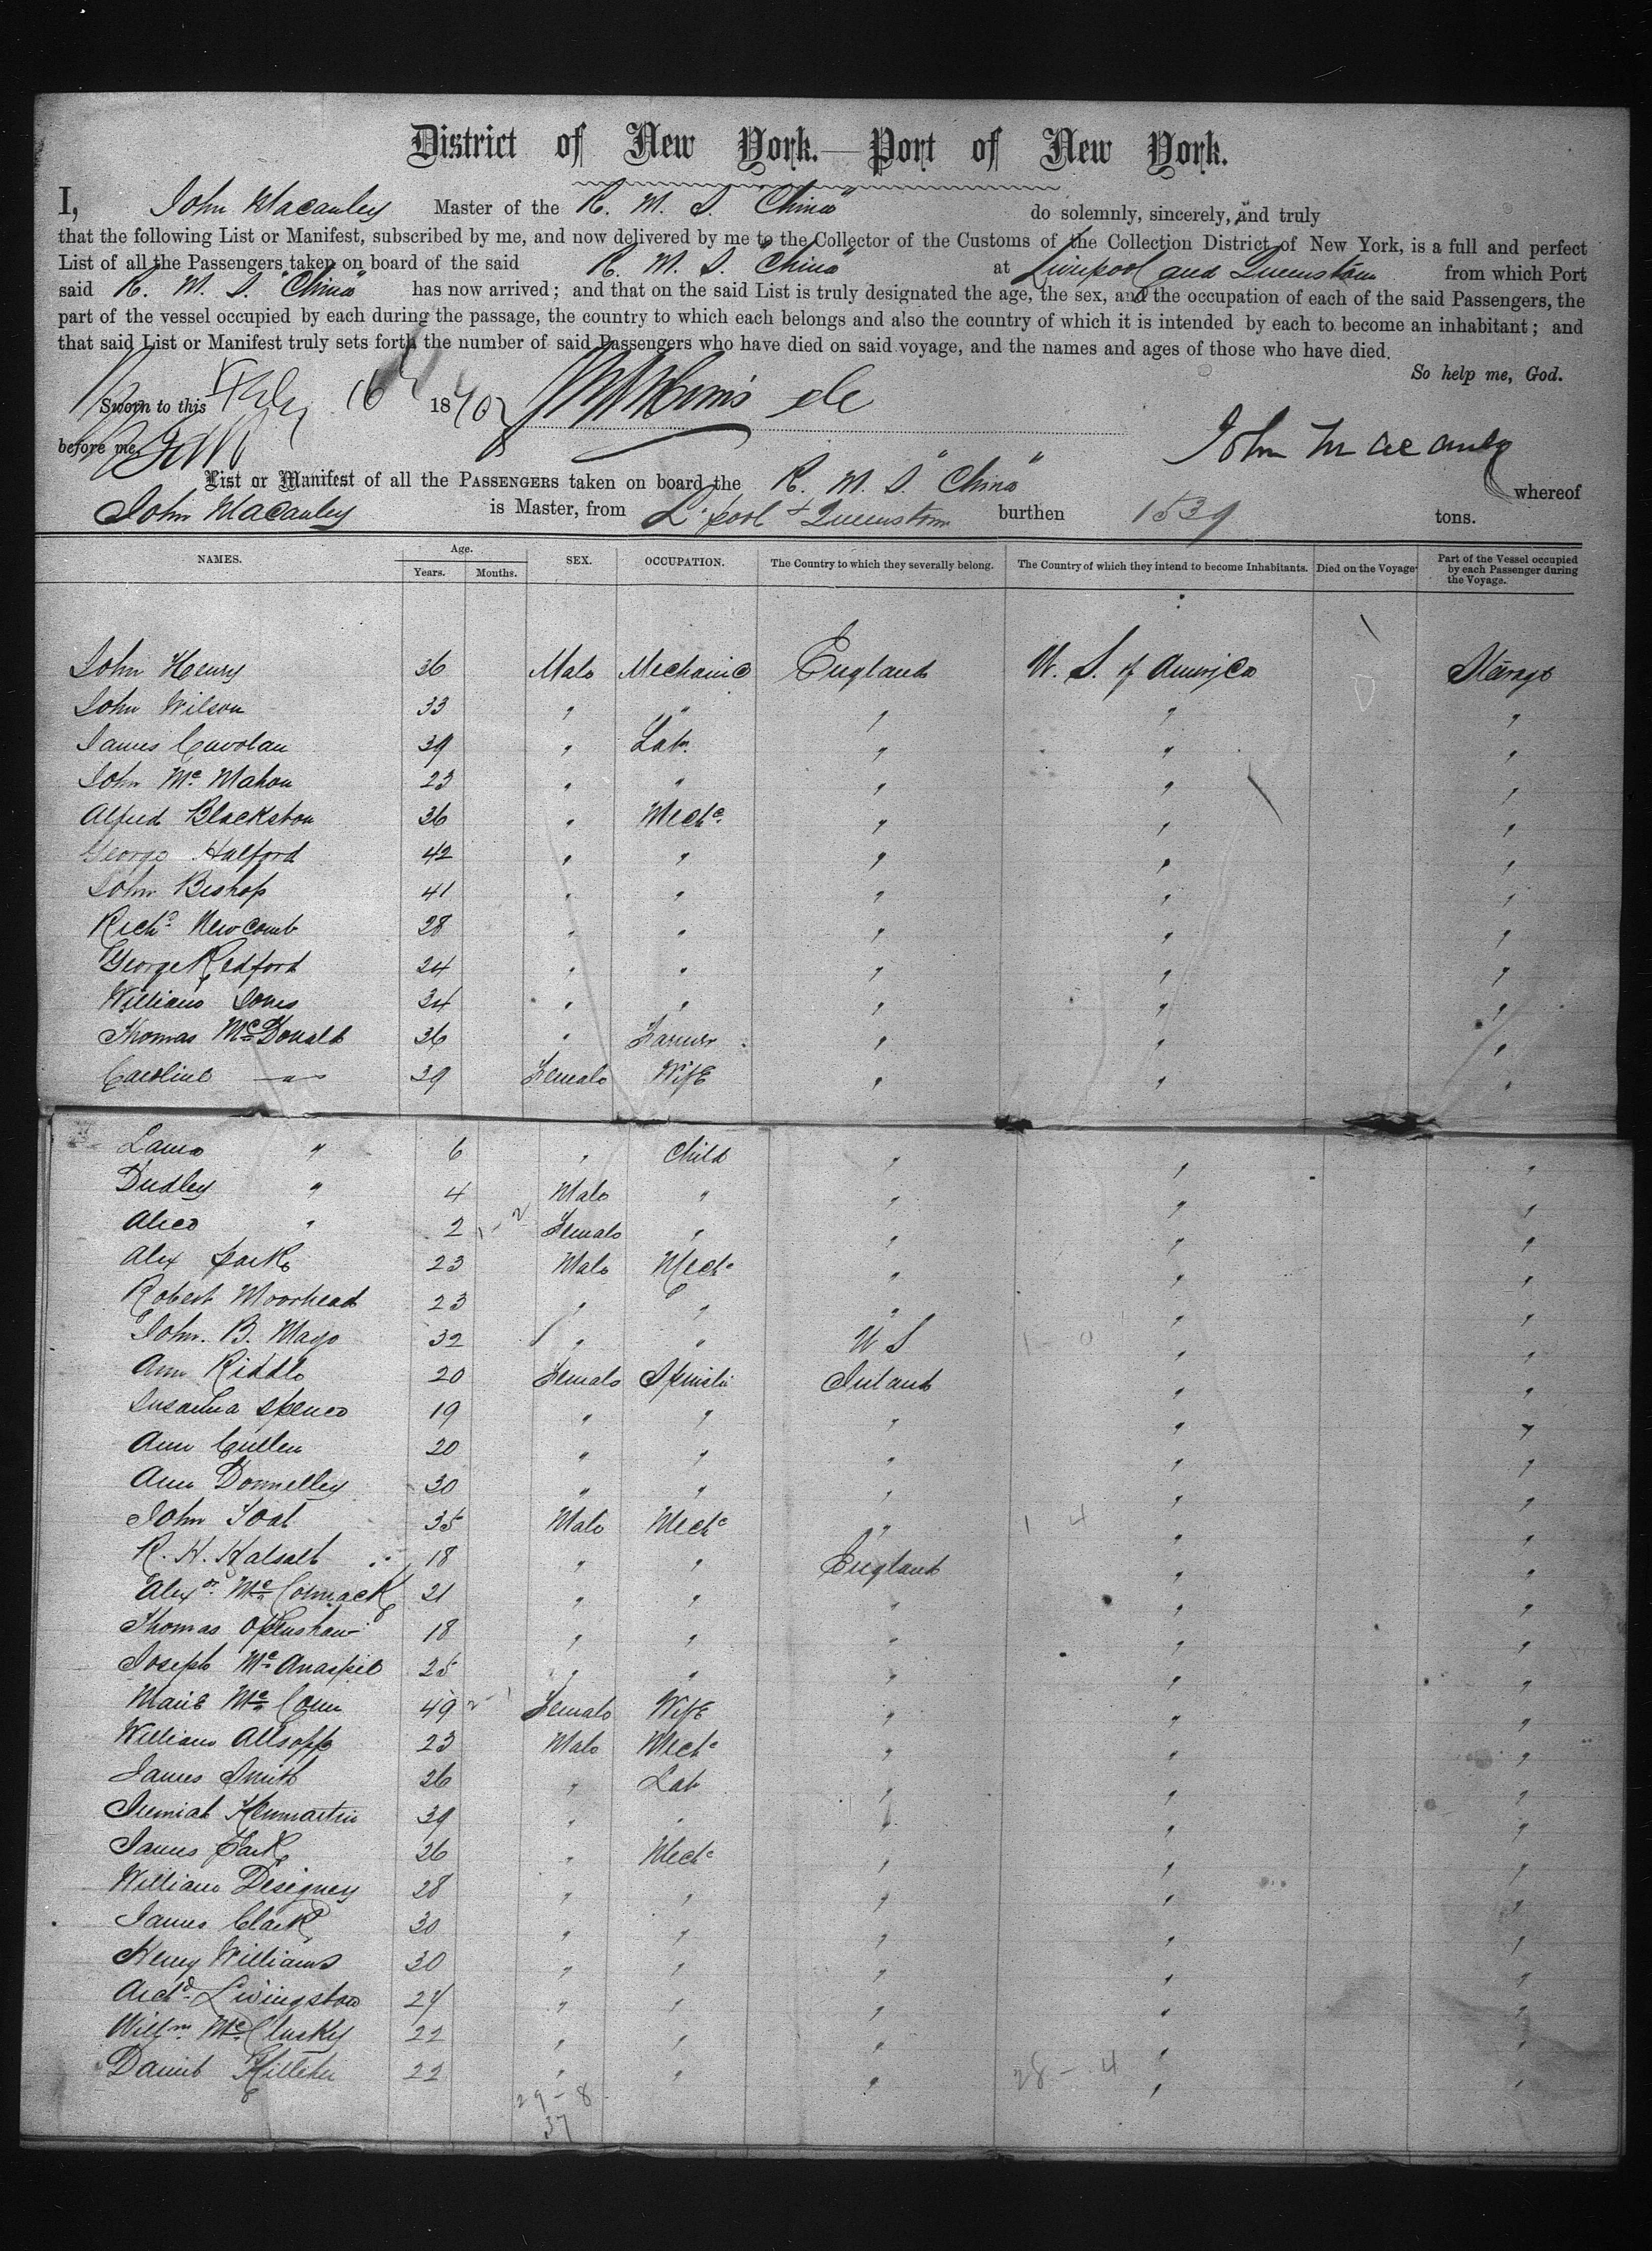 District of New York.—Port of New York.
I, John Macauley Master of the R. M. S. "China" do solemnly, sincerely, and truly
that the following List or Manifest, subscribed by me, and now delivered by me to the Collector of the Customs of the Collection District of New York, is a full and perfect
List of all the Passengers taken on board of the said R. M. S. "China" at Liverpool and Queenstown from which Port
said R. M. S. "China" has now arrived; and that on the said List is truly designated the age, the sex, and the occupation of each of the said Passengers, the
part of the vessel occupied by each during the passage, the country to which each belongs and also the country of which it is intended by each to become an inhabitant; and
that said List or Manifest truly sets forth the number of said Passengers who have died on said voyage, and the names and ages of those who have died.
So help me, God.
Sworn to this 16 1870
before me, John Macauley
List or Manifest of all the PASSENGERS taken on board the R. M. S. "China" whereof
John Macauley is Master, from L'pool + Queenstown burthen 1539 tons.
NAMES. Age. Years. Months. SEX. OCCUPATION. The Country to which they severally belong. The Country of which they intend to become Inhabitants. Died on the Voyage Part of the Vessel occupied by each Passenger during the Voyage.
John Henry 36 Male Mechanic England U. S. of America Steerage
John Wilson 33 " " " " "
James Cavolan 39 " Labr. " " "
John Mc Mahon 23 " " " " "
Alfred Blackston 36 " Mechc. " " "
George Halford 42 " " " " "
John Bishop 41 " " " " "
Richd. Newcomb 28 " " " " "
George Redford 24 " " " " "
William Jones 34 " " " " "
Thomas McDonald 36 " Farmer " " "
Caroline —"— 39 Female Wife " " "
" 6 " Child " " "
Dudley " 4 Male " " " "
Alice " 2 Female " " " "
Alex Park 23 Male Mechc " " "
Robert Moorhead 23 " " " " "
John. B. Mayo 32 " " U S " "
Ann Riddle 20 Female Spinster Ireland " "
Susanna Spence 19 " " " " "
Ann Cullen 20 " " " " "
Ann Donnelley 30 " " " " "
John 35 Male Mechc " 1 4 " "
R. H. Halsall 18 " " England " "
Alexr. McCormack 21 " " " " "
Thomas Openshaw 18 " " " " "
Joseph Mc 25 " " " " "
Marie McCann 49 Female Wife " " "
William Allsopp 23 Male Mechc " " "
James Smith 26 " Labr " " "
Jeremiah Kenmartin 39 " " " " "
James Park 26 " Mechc " " "
William Designey 28 " " " " "
James Clark 30 " " " " "
Henry Williams 30 " " " " "
Archd. Livingston 24 " " " " "
Willm. McClusky 22 " " " " "
Daniel 22 " " " 28 - 4 " "
29 - 8
37